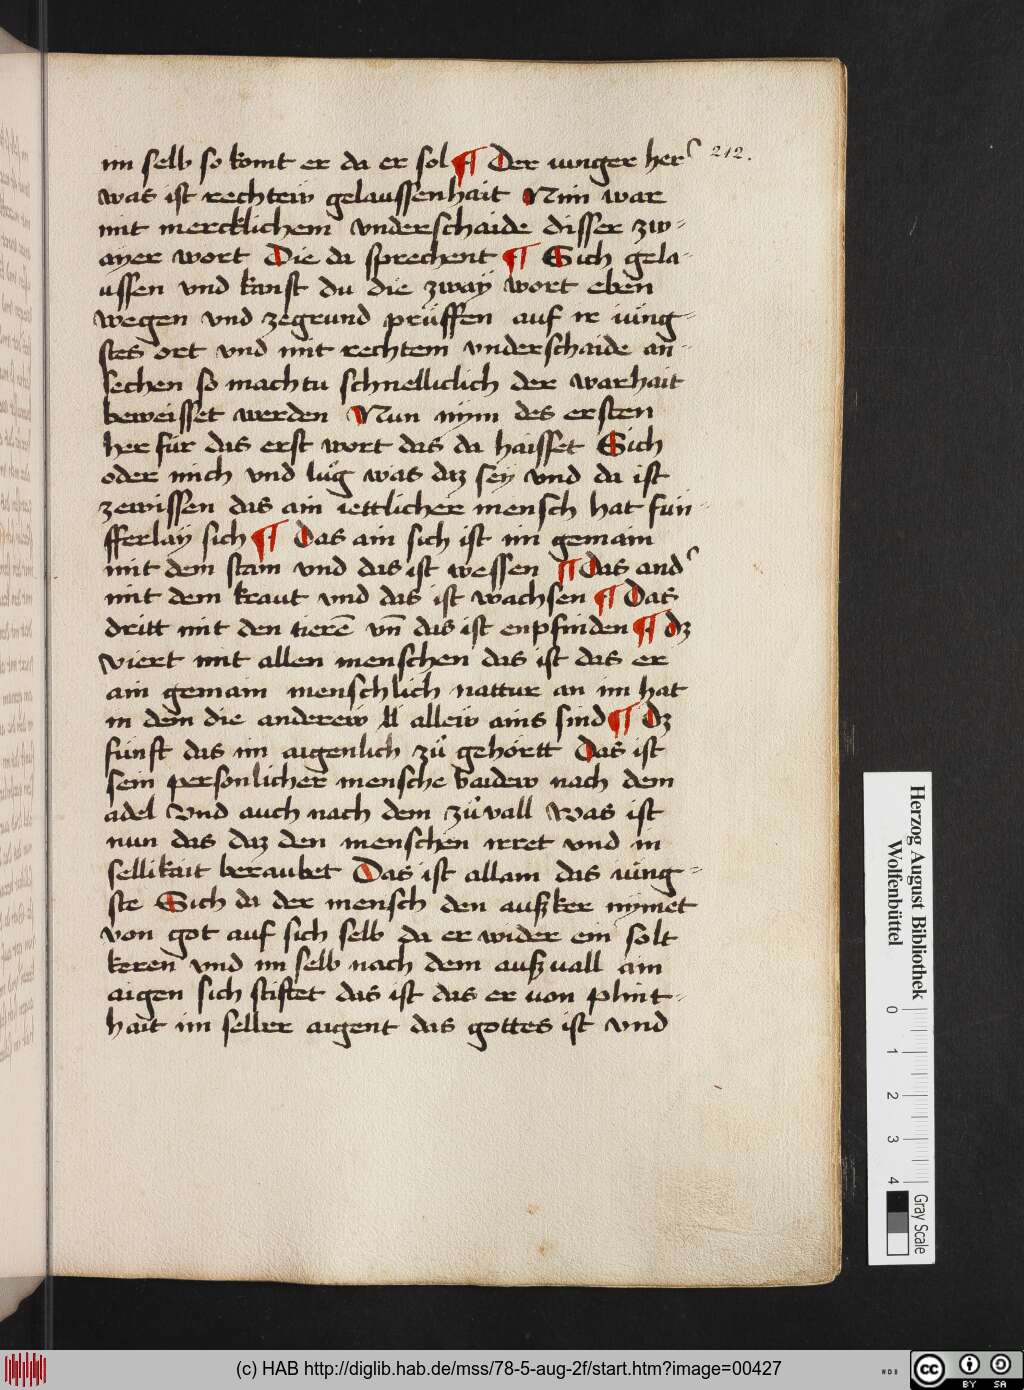 im selb so komt er da er sol ¶ Der iunger her 212.
was ist rechtew gelaussenhait Nim war
mit mercklichem vnderschaide disser zw-
ayer wort Die da sprechent ¶ Sich gela-
ussen vnd kanst du die zway wort eben
wegen vnd zegrund prüffen auf ir iüng-
stes ort vnd mit rechtem vnderschaide an-
sechen so machtu schnelliclich der warhait
beweisset werden Nun nym des ersten
her für das erst wort das da haisset Sich
oder mich vnd lůg was daz sey vnd da ist
zewissen das ain iettlicher mensch hat fün-
fferlay sich ¶ Das ain sich ist im gemain
mit dem stain vnd das ist wessen ¶ Das and
mit dem kraut vnd das ist wachsen ¶ Das
dritt mit den tierē vn̄ das ist enpfinden ¶ dz
viert mit allen menschen das ist das er
ain gemain menschlich nattur an im hat
in dem die anderew all allew ains sind ¶ Dz
fünft das im aigenlich zů gehörtt Das ist
sein personlicher mensche baidew nach dem
adel vnd auch nach dem zůvall Was ist
nun das daz den menschen irret vnd in
sellikait beraubet Das ist allain das iüng-
ste Sich da der mensch den ausz ker nymet
von got auf sich selb da er wider ein solt
keren vnd im selb nach dem ausz vall ain
aigen sich stiftet das ist das er von plint-
hait im selber aigent das gottes ist vnd
Herzog August Bibliothek
Wolfenbüttel
0 1 2 3 4
Gray Scale
(c) HAB http://diglib.hab.de/mss/78-5-aug-2f/start.htm?image=00427
cc BY SA